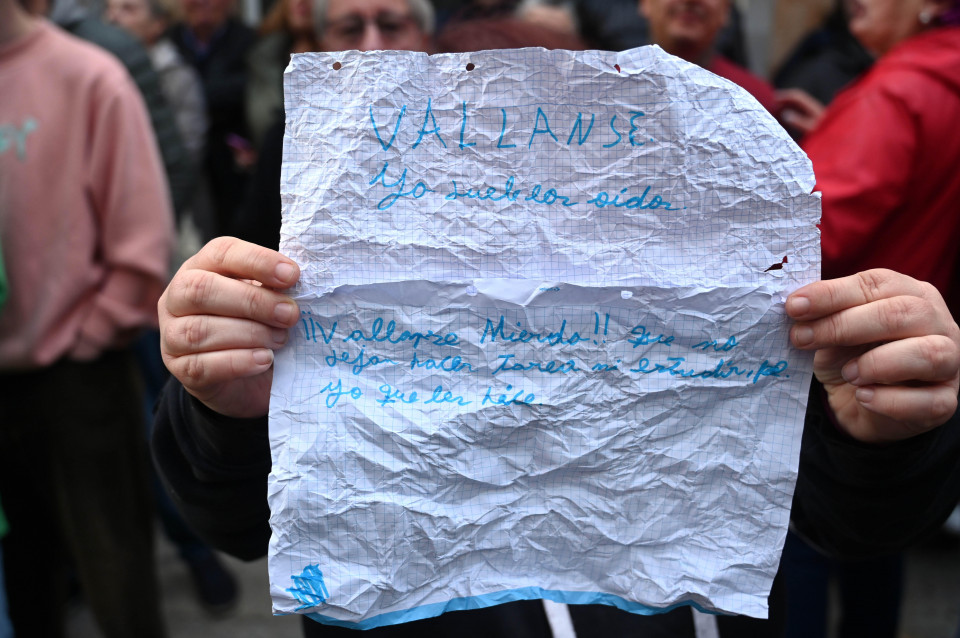 VALLANSE
Yo suelos oidos
¡¡Vallanze Mierda!! que no
dejan hacer tarea ni estudiar,
Yo que les hice